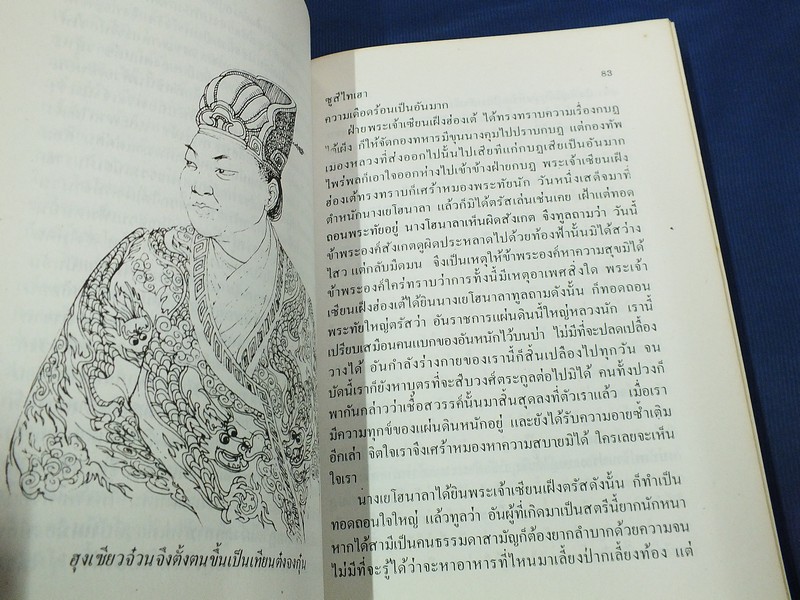 ฮุงเซียวจ๋วนจึงตั้งตนขึ้นเป็นเทียนต๋งจงกุ๋น
83
ซูสีไทเฮา
ความเดือดร้อนเป็นอันมาก
ฝ่ายพระเจ้าเซียนเฝิงฮ่องเต้ ได้ทรงทราบความเรื่องกบฏ
ไต้เผ็ง ก็ให้จัดกองทหารมีขุนนางกุมไปปราบกบฏ แต่กองทัพ
เมืองหลวงที่ส่งออกไปนั้นไปเสียทีแก่กบฏเสียเป็นอันมาก
ไพร่พลก็เอาใจออกห่างไปเข้าข้างฝ่ายกบฏ พระเจ้าเซียนเฝิง
ฮ่องเต้ทรงทราบก็เศร้าหมองพระทัยนัก วันหนึ่งเสด็จมาที่
ตำหนักนางเยโฮนาลา แล้วก็มิได้ตรัสเล่นเช่นเคย เฝ้าแต่ทอด
ถอนพระทัยอยู่ นางโฮนาลาเห็นผิดสังเกต จึงทูลถามว่า วันนี้
ข้าพระองค์สังเกตดูผิดประหลาดไปด้วยท้องฟ้านั้นมิได้สว่าง
ไสว แต่กลับมืดมน จึงเป็นเหตุให้ข้าพระองค์หาความสุขมิได้
ข้าพระองค์ใคร่ทราบว่าการทั้งนี้มีเหตุอาเพศสิ่งใด พระเจ้า
เซียนเฝิงฮ่องเต้ได้ยินนางเยโฮนาลาทูลถามดังนั้น ก็ทอดถอน
พระทัยใหญ่ตรัสว่า อันราชการแผ่นดินนี้ใหญ่หลวงนัก เรานี้
เปรียบเสมือนคนแบกของอันหนักไว้บนบ่า ไม่มีที่จะปลดเปลื้อง
วางได้ อันกำลังร่างกายของเรานี้ก็สิ้นเปลืองไปทุกวัน จน
บัดนี้เราก็ยังหาบุตรที่จะสืบวงศ์ตระกูลต่อไปมิได้ คนทั้งปวงก็
พากันกล่าวว่าเชื้อสวรรค์นั้นมาสิ้นสุดลงที่ตัวเราแล้ว เมื่อเรา
มีความทุกข์ของแผ่นดินหนักอยู่ และยังได้รับความอายซ้ำเติม
อีกเล่า จิตใจเราจึงเศร้าหมองหาความสบายมิได้ ใครเลยจะเห็น
ใจเรา
นางเยโฮนาลาได้ยินพระเจ้าเซียนเฝิงตรัสดังนั้น ก็ทำเป็น
ทอดถอนใจใหญ่ แล้วทูลว่า อันผู้ที่เกิดมาเป็นสตรีนี้ยากนักหนา
หากได้สามีเป็นคนธรรมดาสามัญก็ต้องยากลำบากด้วยความจน
ไม่มีที่จะรู้ได้ว่าจะหาอาหารที่ไหนมาเลี้ยงปากเลี้ยงท้อง แต่